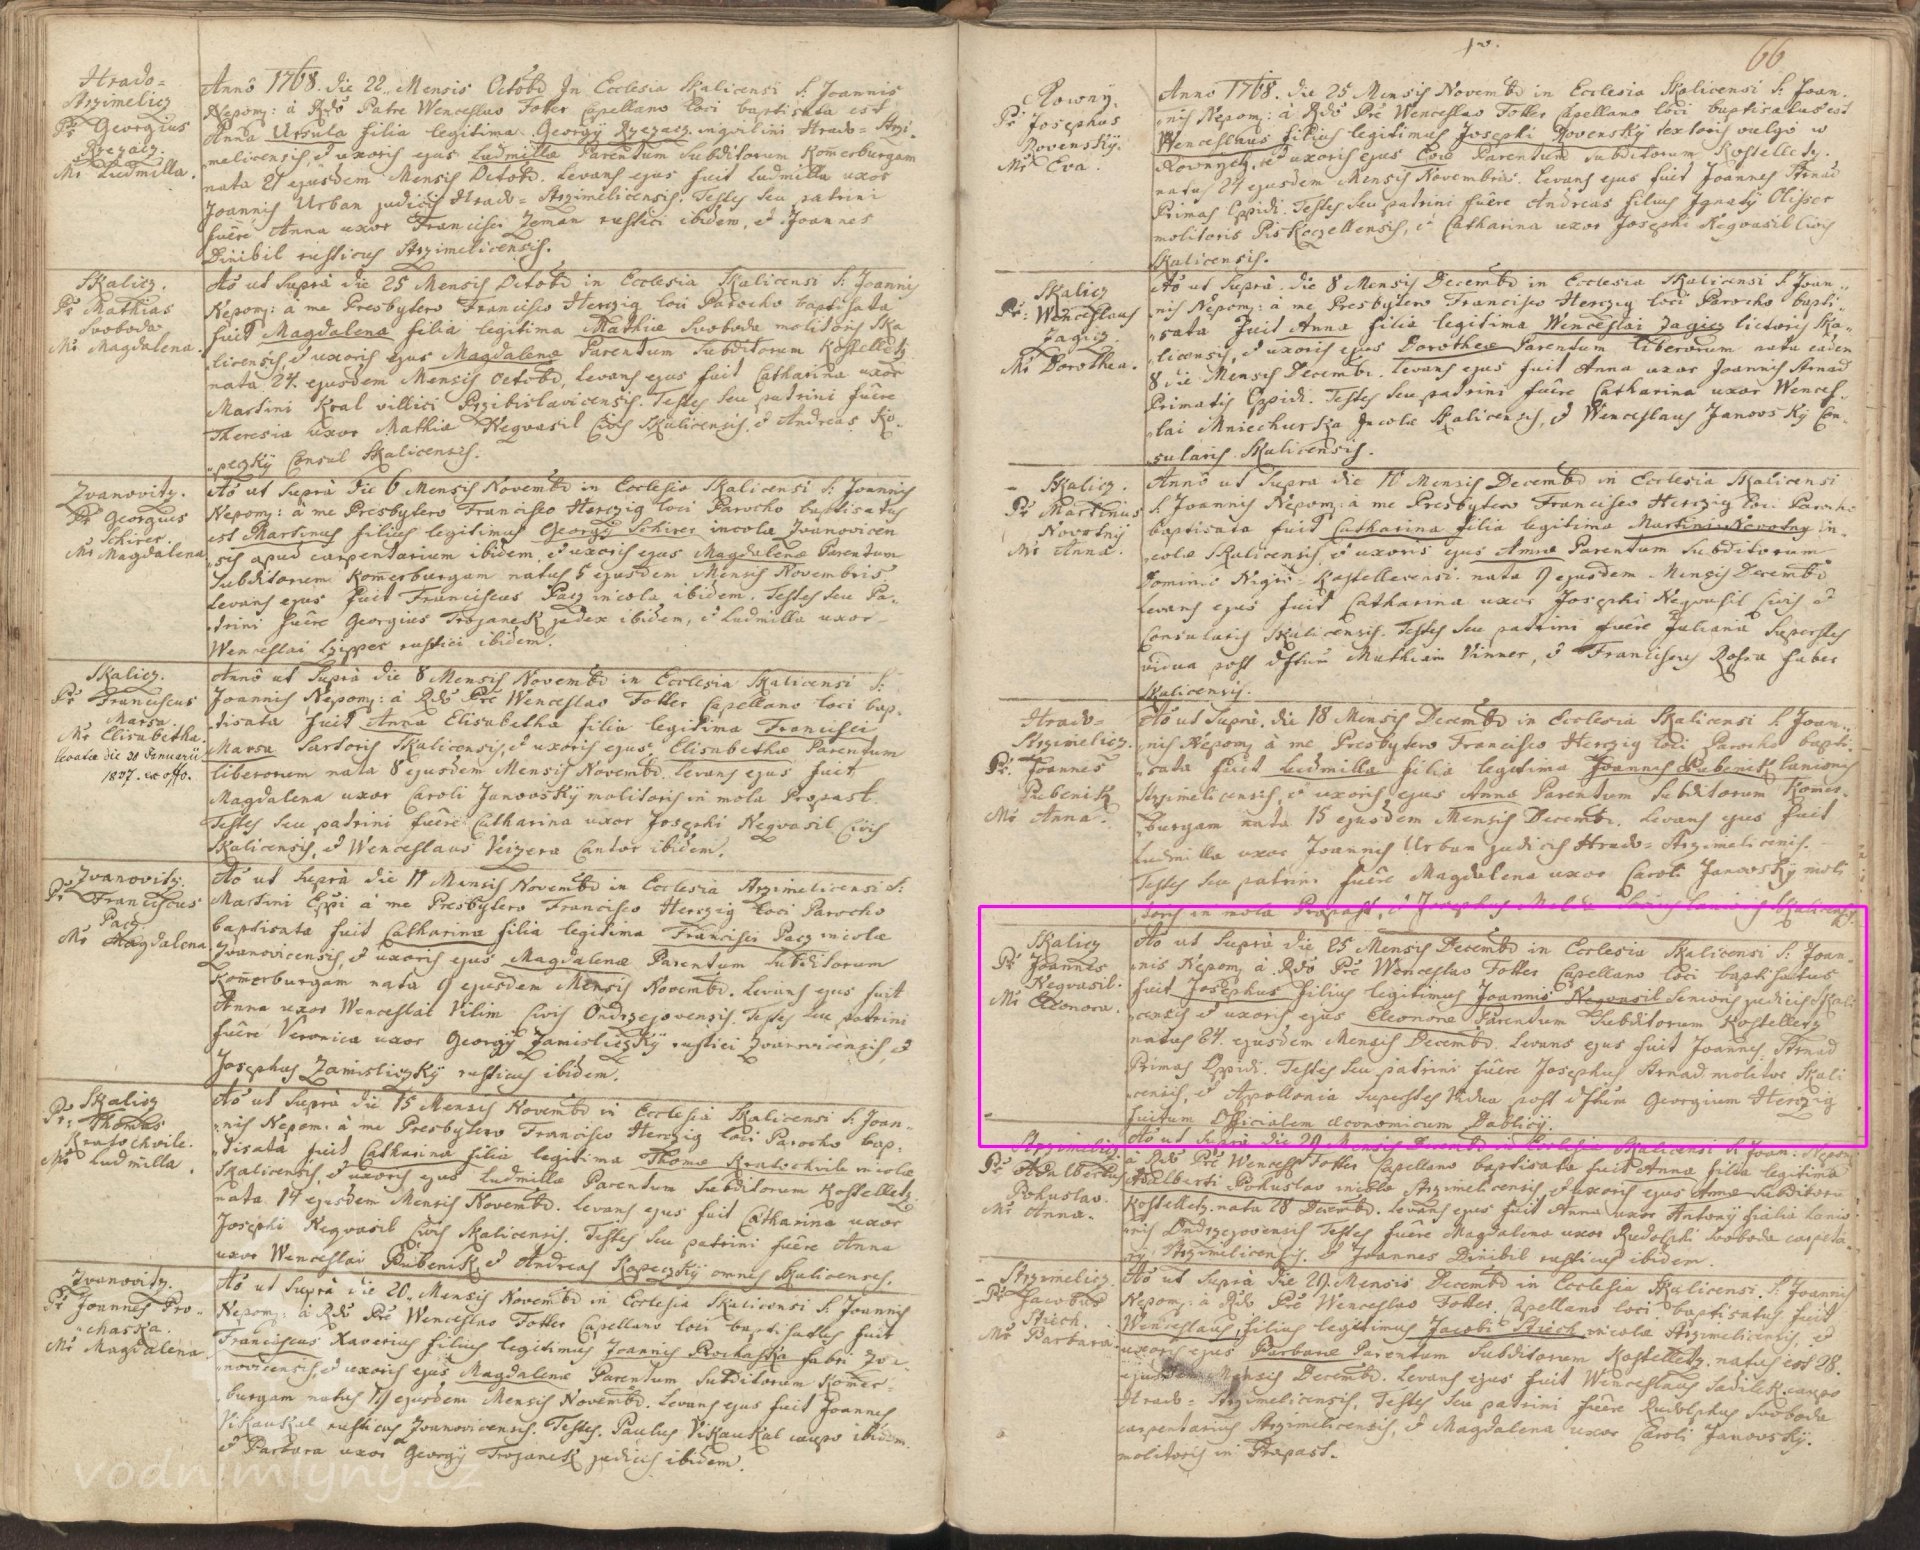 Hrado=
Strzimelicz
Pr Georgius
Rzezacz.
Mr Ludmilla.
Anno 1768. die 22. Mensis Octobr In Ecclesia Skalicensi S: Joannis
Nepom: à Rdo Patre Wenceslao Totter Capellano loci baptisata est
Anna Ursula filia legitima Georgy Rzezacz inquilini Hrado= Strzi-
malicensis, et uxoris ejus Ludmillae Parentum Subditorum Komerburgam
nata 21 ejusdem Mensis Octobr. Levans ejus fuit Ludmilla uxor
Joannis Urban judicis Hrado= Strzimelicensis. Testes seu patrini
fuêre Anna uxor Francisci Zeman rustici ibidem, et Joannes
Dinibil rusticus Strzimelicensis.
Skalicz.
Pr Mathias
Svoboda
Mr Magdalena.
Ao ut Suprà die 25 Mensis Octobr in Ecclesia Skalicensi S: Joannis
Nepom: à me Presbytero Francisco Herczig loci Parocho baptisata
fuit Magdalena filia legitima Mathiae Svoboda molitoris Ska
licensis, et uxoris ejus Magdalenae Parentum Subditorum Kostelletz
nata 24. ejusdem Mensis Octobr, Levans ejus fuit Catharina uxor
Martini Kral villici Przibislavicensis. Testes seu patrini fuêre
Theresia uxor Mathiae Neqvasil Civis Skalicensis, et Andreas Ko-
peczky Consul Skalicensis.
Ivanovitz.
Pr Georgius
Schirer
Mr Magdalena
Ao ut Suprà die 6 Mensis Novembr in Ecclesia Skalicensi S: Joannis
Nepom: à me Presbytero Francisco Herczig loci Parocho baptisatus
est Martinus filius legitimus Georgy Schirer incolae Ivanovicen
sis apud carpentarium ibidem, et uxoris ejus Magdalenae Parentum
Subditorum Komerburgam natus 5 ejusdem Mensis Novembris
Levans ejus fuit Franciscus Pacz incola ibidem. Testes seu Pa-
trini fuêre Georgius Trojanek judex ibidem, et Ludmilla uxor
Wenceslai Lipper rustici ibidem.
Skalicz.
Pr Franciscus
Marsa.
Mr Elisabetha.
levata die 30 Januarii
1827. ex offo.
Anno ut Suprà die 8 Mensis Novembr in Ecclesia Skalicensi S:
Joannis Nepom: à Rdo Pre Wenceslao Totter Capellano loci bap-
tisata fuit Anna Elisabetha filia legitima Francisci
Marsa Sartoris Skalicensis, et uxoris ejus Elisabethae Parentum
liberorum nata 8 ejusdem Mensis Novembr. Levans ejus fuit
Magdalena uxor Caroli Janovsky molitoris in mola Propast.
Testes seu patrini fuêre Catharina uxor Josephi Neqvasil Civis
Skalicensis, et Wenceslaus Veizera Cantor ibidem.
Ivanovitz.
Pr Franciscus
Pacz
Mr Magdalena
Ao ut Suprà die 11 Mensis Novembr in Ecclesia Strzimelicensi S:
Martini Eppi à me Presbytero Francisco Herczig loci Parocho
baptisata fuit Catharina filia legitima Francisci Pacz incolae
Ivanovicensis, et uxoris ejus Magdalenae Parentum Subditorum
Komerburgam nata 9 ejusdem Mensis Novembr. Levans ejus fuit
Anna uxor Wenceslai Vilim Civis Ondrzejovensis. Testes seu patrini
fuêre Veronica uxor Georgy Zamisliczky rustici Ivanovicensis, et
Josephus Zamisliczky rusticus ibidem.
Skalicz
Pr: Thomas
Kratochvile.
Mr Ludmilla.
Ao ut Suprà die 15 Mensis Novembr in Ecclesia Skalicensi S: Joan-
nis Nepom: à me Presbytero Francisco Herczig loci Parocho bap-
tisata fuit Catharina filia legitima Thomae Kratochvile incolae
Skalicensis, et uxoris ejus Ludmillae Parentum Subditorum Kostelletz
nata 14 ejusdem Mensis Novembr. Levans ejus fuit Catharina uxor
Josephi Neqvasil Civis Skalicensis. Testes seu patrini fuêre Anna
uxor Wenceslai Bubenik, et Andreas Kopeczky omnes Skalicenses.
Ivanovitz.
Pr Joannes Pro-
chaska.
Mr Magdalena
Ao ut Suprà die 20. Mensis Novembr in Ecclesia Skalicensi S: Joannis
Nepom: à Rdo Pre Wenceslao Totter Capellano loci baptisatus fuit
Franciscus Xaverius filius legitimus Joannis Prochaska fabri Iva-
novicensis, et uxoris ejus Magdalenae Parentum Subditorum Komer-
burgam natus 19 ejusdem Mensis Novembr. Levans ejus fuit Joannes
Vikaukal rusticus Ivanovicensis. Testes. Paulus Vikaukal caupo ibidem
et Barbara uxor Georgy Trojanek judicis ibidem.
vodnimlyny.cz
66
Rowny.
Pr Josephus
Rovensky.
Mr Eva.
Anno 1768. die 25 Mensis Novembr in Ecclesia Skalicensi S: Joan-
nis Nepom: à Rdo Pre Wenceslao Totter Capellano loci baptisatus est
Wenceslaus filius legitimus Josephi Rovensky textoris vulgo w
Rownym, et uxoris ejus Evae Parentum Subditorum Kostelletz.
natus 24 ejusdem Mensis Novembris. Levans ejus fuit Joannes Strnad
Primas Oppidi. Testes seu patrini fuêre Andreas filius Ignaty Olisser
molitoris Piskoczellensis, et Catharina uxor Josephi Neqvasil Civis
Skalicensis.
Skalicz
Pr: Wenceslaus
Jagicz.
Mr Dorothea.
Ao ut Suprà. die 8 Mensis Decembr in Ecclesia Skalicensi S Joan-
nis Nepom: à me Presbytero Francisco Herczig loci Parocho bapti-
sata fuit Anna filia legitima Wenceslai Jagicz lictoris Ska-
licensis, et uxoris ejus Dorotheae Parentum liberorum nata eadem
8 die Mensis Decembr. Levans ejus fuit Anna uxor Joannis Strnad
Primatis Oppidi. Testes seu patrini fuêre Catharina uxor Wences-
lai Mniechurka Incolae Skalicensis, et Wenceslaus Janovsky Con-
sularis Skalicensis.
Skalicz.
Pr Martinus
Novotny
Mr Anna.
Anno ut Supra die 10 Mensis Decembr in Ecclesia Skalicensi
S: Joannis Nepom: à me Presbytero Francisco Herczig loci Parocho
baptisata fuit Catharina filia legitima Martini Novotny in-
colae Skalicensis et uxoris ejus Annae Parentum Subditorum
Dominio Nigro-Kostellecensi. nata 9 ejusdem Mensis Decembr
Levans ejus fuit Catharina uxor Josephi Neqvasil Civis et
Consularis Skalicensis. Testes seu patrini fuêre Juliana Superstes
vidua post dftum Mathiam Vinner, et Franciscus Rosra faber
Skalicensis.
Hrado=
Strzimelicz.
Pr. Joannes
Bubenik
Mr Anna.
Ao ut Suprà. die 18 Mensis Decembr in Ecclesia Skalicensi S: Joan-
nis Nepom, à me Presbytero Francisco Herczig loci Parocho bapti-
sata fuit Ludmilla filia legitima Joannis Bubenik lanionis
Strzimelicensis, et uxoris ejus Annae Parentum Subditorum Komer-
burgam nata 15 ejusdem Mensis Decembr. Levans ejus fuit
Ludmilla uxor Joannis Urban judicis Hrado= Strzimelicensis.
Testes seu patrini fuêre Magdalena uxor Caroli Janovsky moli
toris in mola Propast, et Josephus Civis Skalicensis.
Skalicz
Pr Joannes
Neqvasil.
Mr Eleonora.
Ao ut Suprà die 25 Mensis Decembr in Ecclesia Skalicensi S: Joan-
nis Nepom à Rdo Pre Wenceslao Totter Capellano loci baptisatus
fuit Josephus filius legitimus Joannis Neqvasil Senioris judicis Skali
censis et uxoris ejus Eleonorae Parentum Subditorum Kostelletz
natus 24. ejusdem Mensis Decembr. Levans ejus fuit Joannes Strnad
Primas Oppidi. Testes seu patrini fuêre Josephus Strnad molitor Skali
censis, et Appollonia Superstes Vidua post dftum Georgium Herczig
fuitum Officialem oeconomicum Dablicy.
Strzimelicz.
Pr Adalbertus
Bohuslav.
Mr Anna.
Ao ut Suprà die 29 Mensis Decembr in Ecclesia Skalicensi S. Joan: Nepom
à Rdo Pre Wencesl Totter Capellano baptisata fuit Anna filia legitima
Adalberti Bohuslav incolae Strzimelicensis, et uxoris ejus Annae Subditorum
Kostelletz. nata 28 Decembr. Levans ejus fuit Anna uxor Antony Fiala lanio
nis Ondrzejovensis Testes fuêre Magdalena uxor Rudolphi Svoboda carpenta-
ry Strzimelicensis. et Joannes Dinibil rusticus ibidem
Strzimelicz.
Pr Jacobus
Stiech.
Mr Barbara.
Ao ut Suprà die 29. Mensis Decembr in Ecclesia Skalicensi. S. Joannis
Nepom: à Rdo Pre Wenceslao Totter. Capellano loci baptisatus fuit
Wenceslaus filius legitimus Jacobi Stiech incolae Strzimelicensis, et
uxoris ejus Barbarae Parentum Subditorum Kostelletz. natus est 28.
ejusdem Mensis Decembr. Levans ejus fuit Wenceslaus Sadilek caupo
Hrado= Strzimelicensis, Testes seu patrini fuêre Rudolphus Svoboda
carpentarius Strzimelicensis, et Magdalena uxor Caroli Janovsky.
molitoris in Propast.